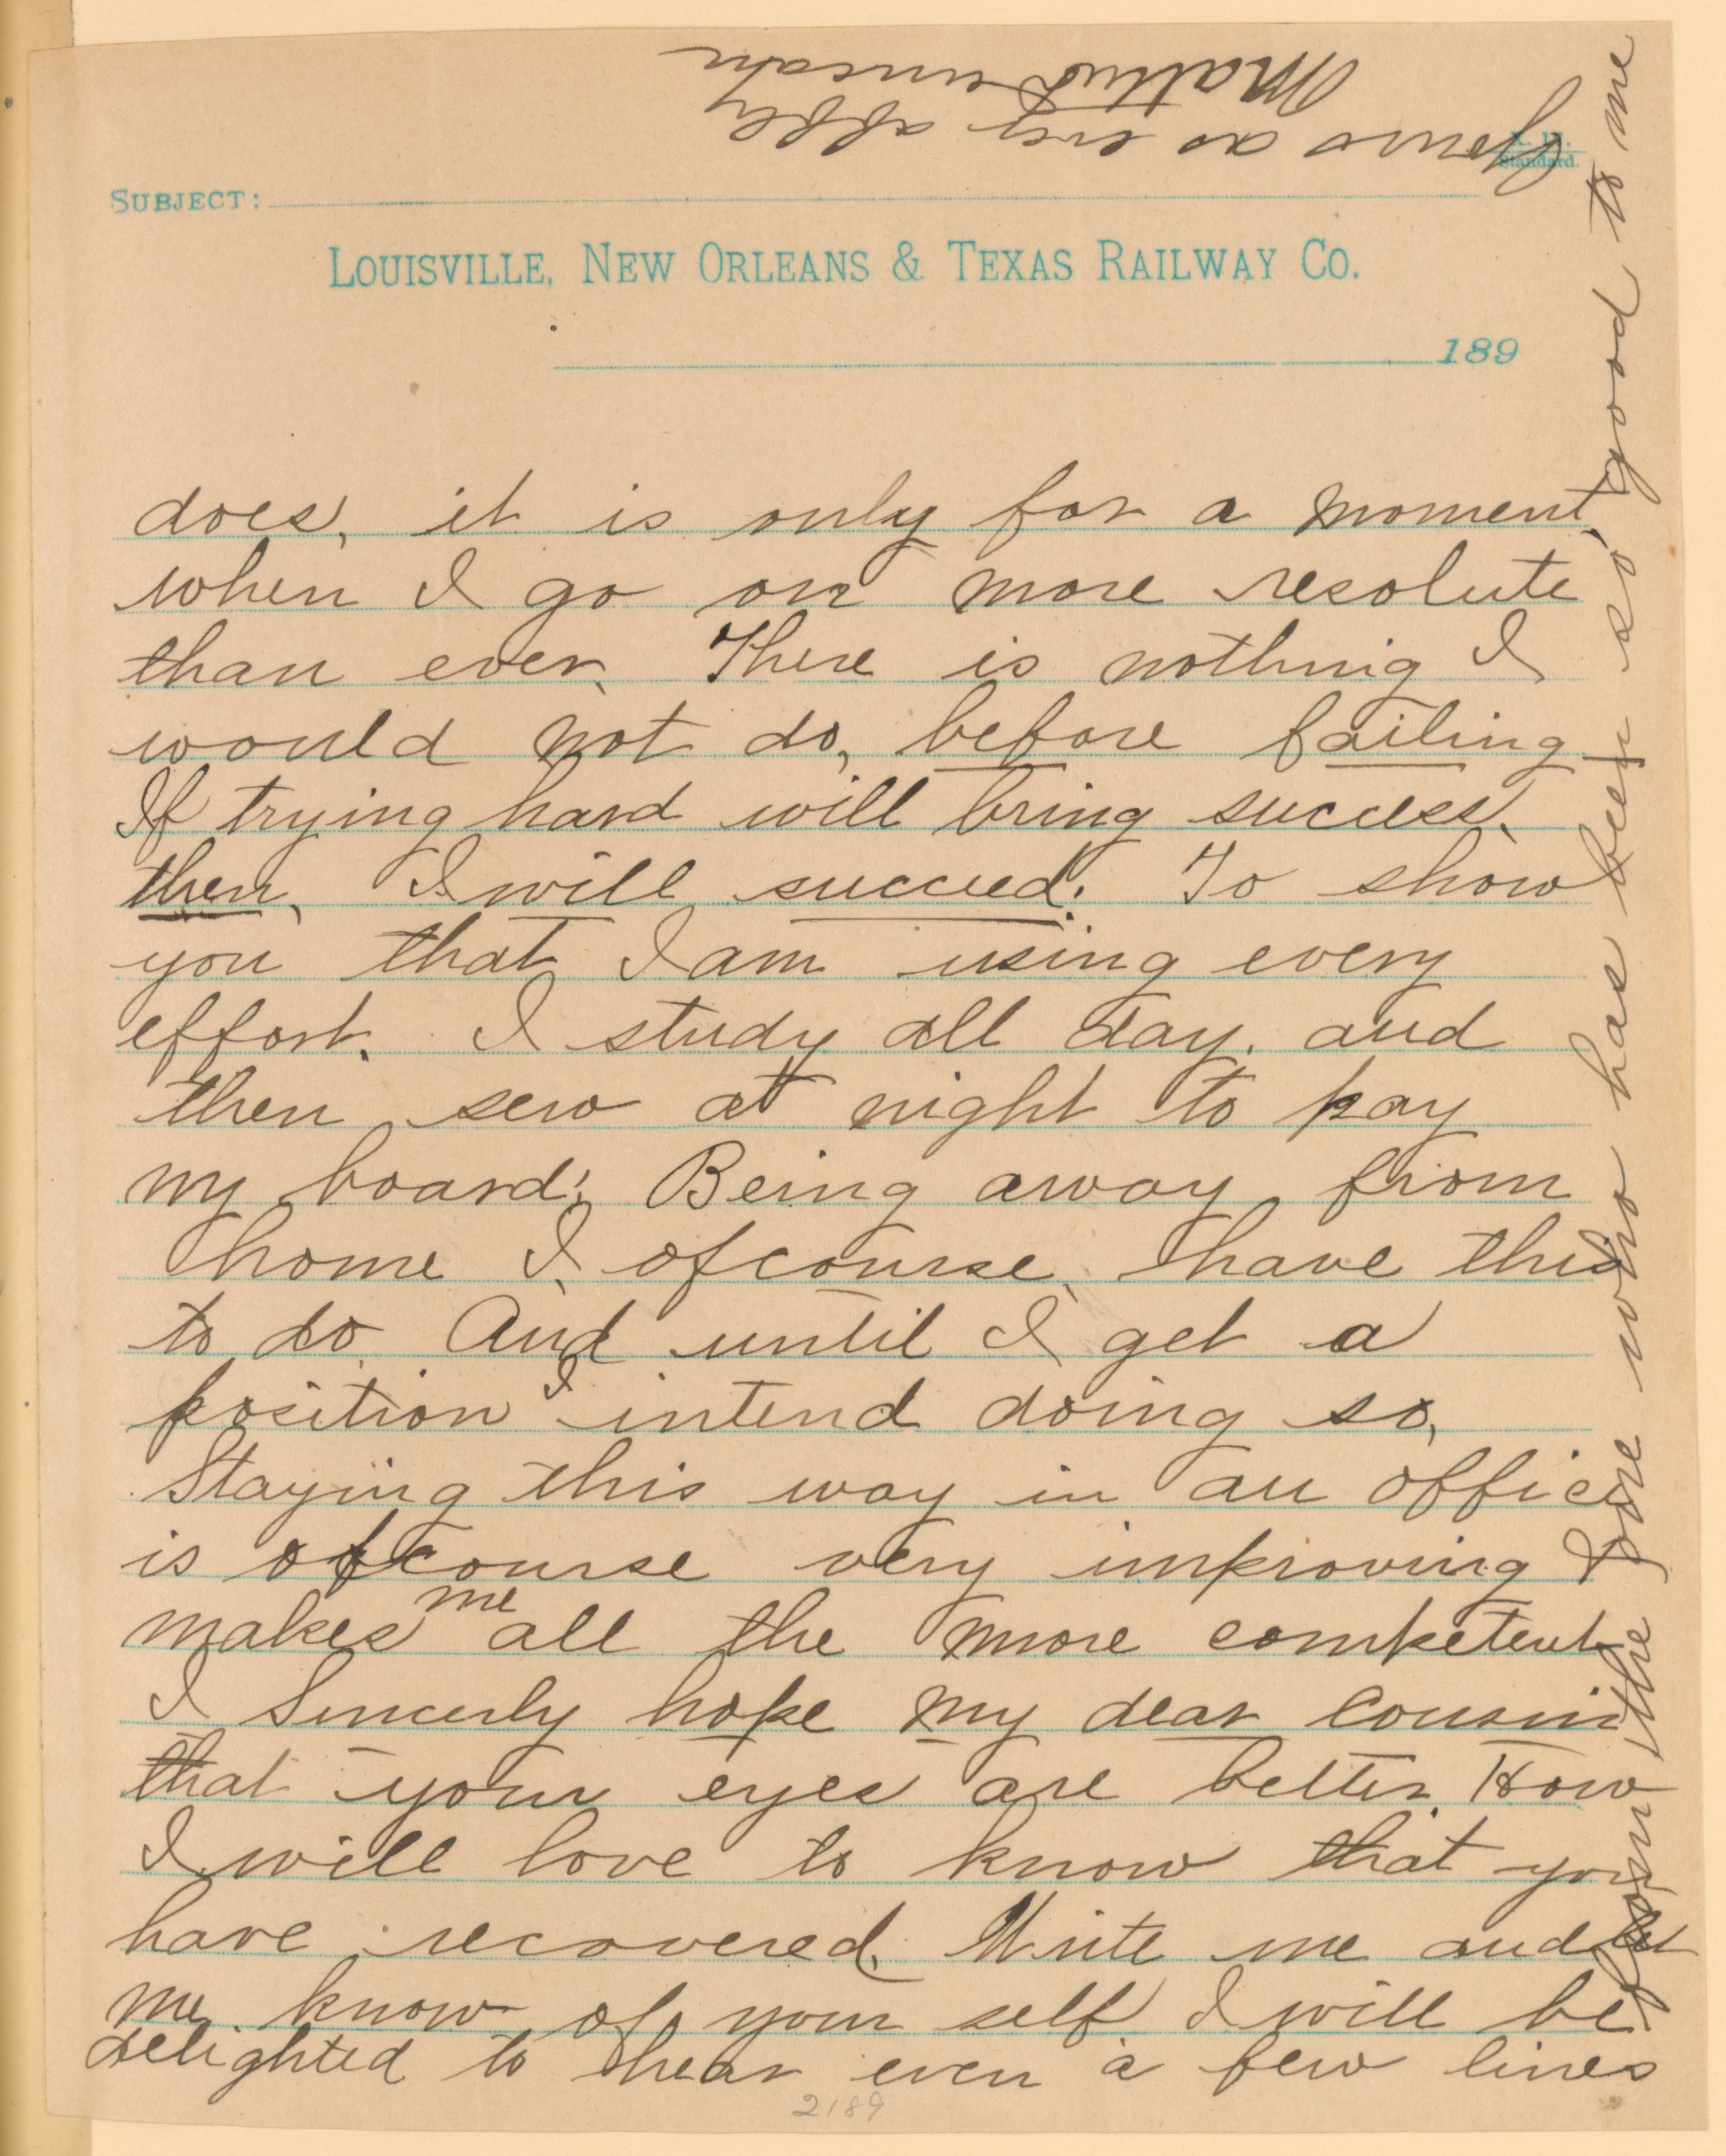 X. D.
Standard.
SUBJECT:
LOUISVILLE, NEW ORLEANS & TEXAS RAILWAY CO.
189
does, it is only for a moment,
when I go on more resolute
than ever. There is nothing I
would not do, before failing
If trying hard will bring success,
then, I will succeed. To show
you that I am using every
effort. I study all day, and
then sew at night to pay
my board; Being away from
home I, ofcourse, have this
to do And until I get a
position I intend doing so,
Staying this way in an office
is ofcourse very improving &
makes me all the more competent
I Sincerly hope my dear Cousin
that your eyes are better. How
I will love to know that you
have recovered. Write me and let
me know of your self I will be
delighted to hear even a few lines
from the one who has been so good to me
Yours as ever affly
Mattie
2189